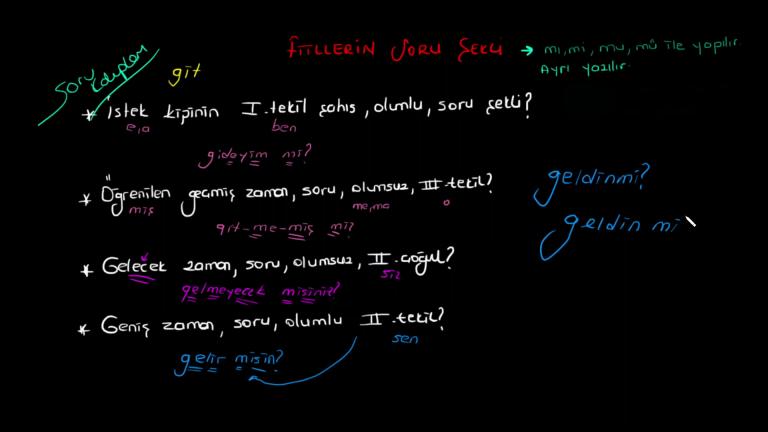 FİİLLERİN SORU ŞEKLİ → mı, mi, mu, mü ile yapılır.
Ayrı yazılır.
Soru kalıpları
git
* İstek kipinin I. tekil şahıs, olumlu, soru şekli?
e, a
ben
gideyim mi?
* Öğrenilen geçmiş zaman, soru, olumsuz, III. tekil?
miş
me, ma
o
git-me-miş mi?
geldinmi?
geldin mi
* Gelecek zaman, soru, olumsuz, II. çoğul?
siz
gelmeyecek misiniz?
* Geniş zaman, soru, olumlu II. tekil?
sen
gelir misin?